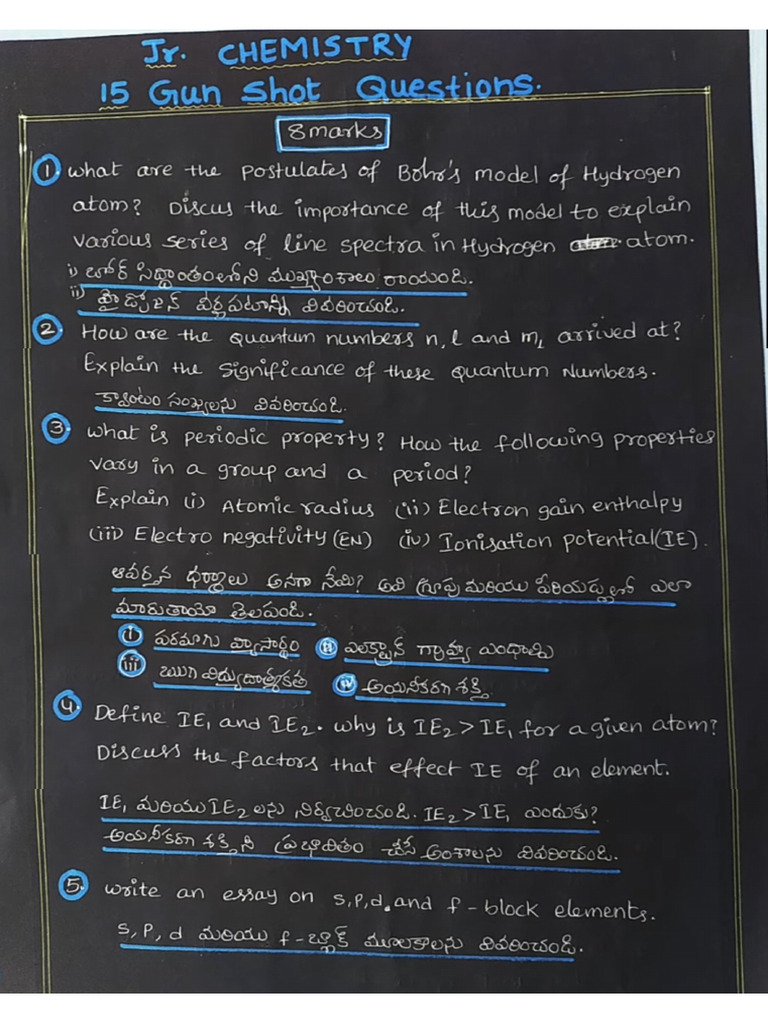 Jr. CHEMISTRY
15 Gun Shot Questions.
8 marks
1. What are the Postulates of Bohr's model of Hydrogen
atom? Discus the importance of this model to explain
various series of line spectra in Hydrogen atom.
i) బోర్ సిద్ధాంతంలోని ముఖ్యాంశాలు రాయండి.
ii) హైడ్రోజన్ వర్ణపటాన్ని వివరించండి.
2. How are the Quantum numbers n, l and mL arrived at?
Explain the Significance of these Quantum Numbers.
క్వాంటం సంఖ్యలను వివరించండి.
3. What is periodic property? How the following properties
vary in a group and a period?
Explain (i) Atomic radius (ii) Electron gain enthalpy
(iii) Electro negativity (EN) (iv) Ionisation potential (IE).
ఆవర్తన ధర్మాలు అనగా నేమి? అవి గ్రూపు మరియు పీరియడ్లలో ఎలా
మారుతాయో తెలపండి.
i పరమాణు వ్యాసార్థం ii ఎలక్ట్రాన్ గ్రాహ్య ఎంథాల్పి
iii ఋణ విద్యుదాత్మకత iv అయనీకరణ శక్తి.
4. Define IE1 and IE2. Why is IE2 > IE1 for a given atom?
Discuss the factors that effect IE of an element.
IE1 మరియు IE2 లను నిర్వచించండి. IE2 > IE1 ఎందుకు?
అయనీకరణ శక్తిని ప్రభావితం చేసే అంశాలను వివరించండి.
5. Write an essay on s, p, d, and f - block elements.
s, p, d మరియు f - బ్లాక్ మూలకాలను వివరించండి.